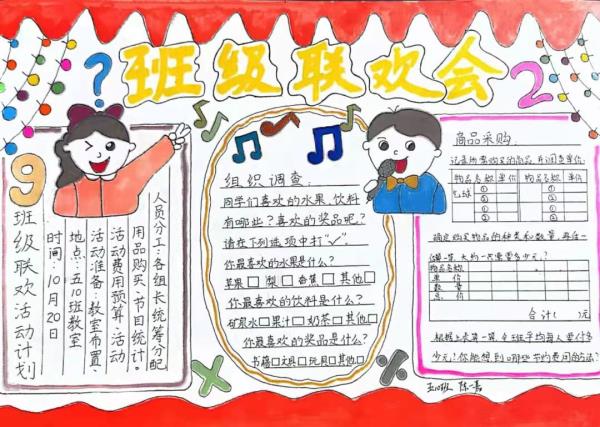 班级联欢会
?
2
9
班级联欢活动计划
时间:10月20日
地点:五10班教室
活动准备:教室布置、
活动费用预算、活动
用品购买、节目统计。
人员分工:各组长统筹分配
组织调查:
同学们喜欢的水果、饮料
有哪些?喜欢的奖品呢?
请在下列选项中打"✓"。
你最喜欢的水果是什么?
苹果□梨□香蕉□其他□
你最喜欢的饮料是什么?
矿泉水□果汁□奶茶□其他□
你最喜欢的奖品是什么?
书籍□文具□玩具□其他□
商品采购:
记录所需购买的商品,并调查单价:
物品名称 单价 物品名称 单价
气球 ① ①
② ②
③ ③
确定购买物品的种类和数量,再
算一算,大约一共需要多少元?
物品名称
单价
数量
总价
合计( )元
根据上表算一算,全班平均每人要付多
少元?你能想到哪些节约费用的方法?
五10班 陈一